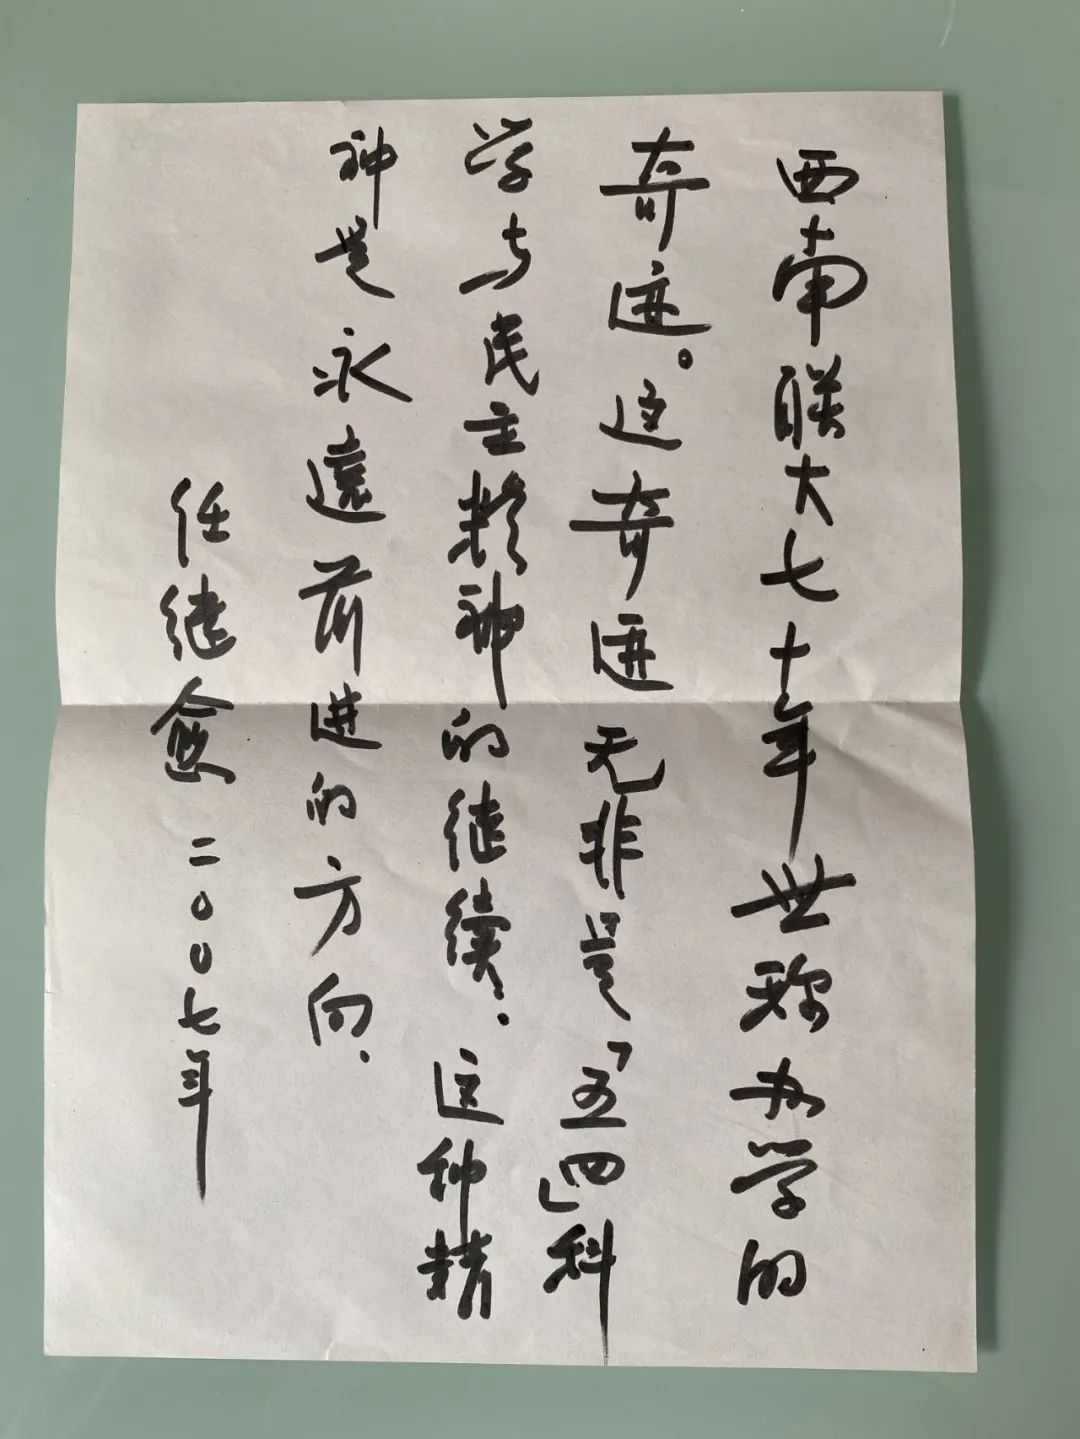 西南联大七十年世称办学的
奇迹。这奇迹无非是「五四」科
学与民主精神的继续．这种精
神是永遠前进的方向．
任继愈 二〇〇七年